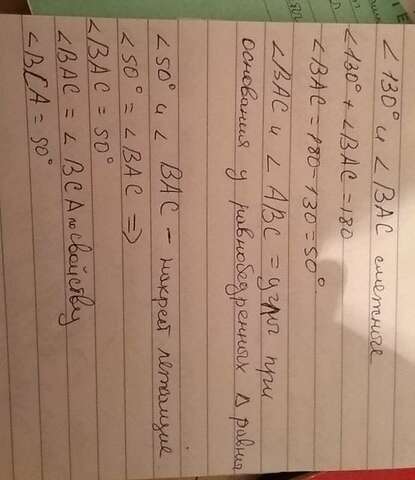 ∠130° и ∠BAC смежные
∠130° + ∠BAC = 180
∠BAC = 180 - 130 = 50°
∠BAC и ∠ABC = углы при
основания у равнобедренных Δ равны
∠50° и ∠ BAC - накрест лежащие
∠50° = ∠BAC =>
∠BAC = 50°
∠BAC = ∠BCA по свойству
∠BCA = 50°